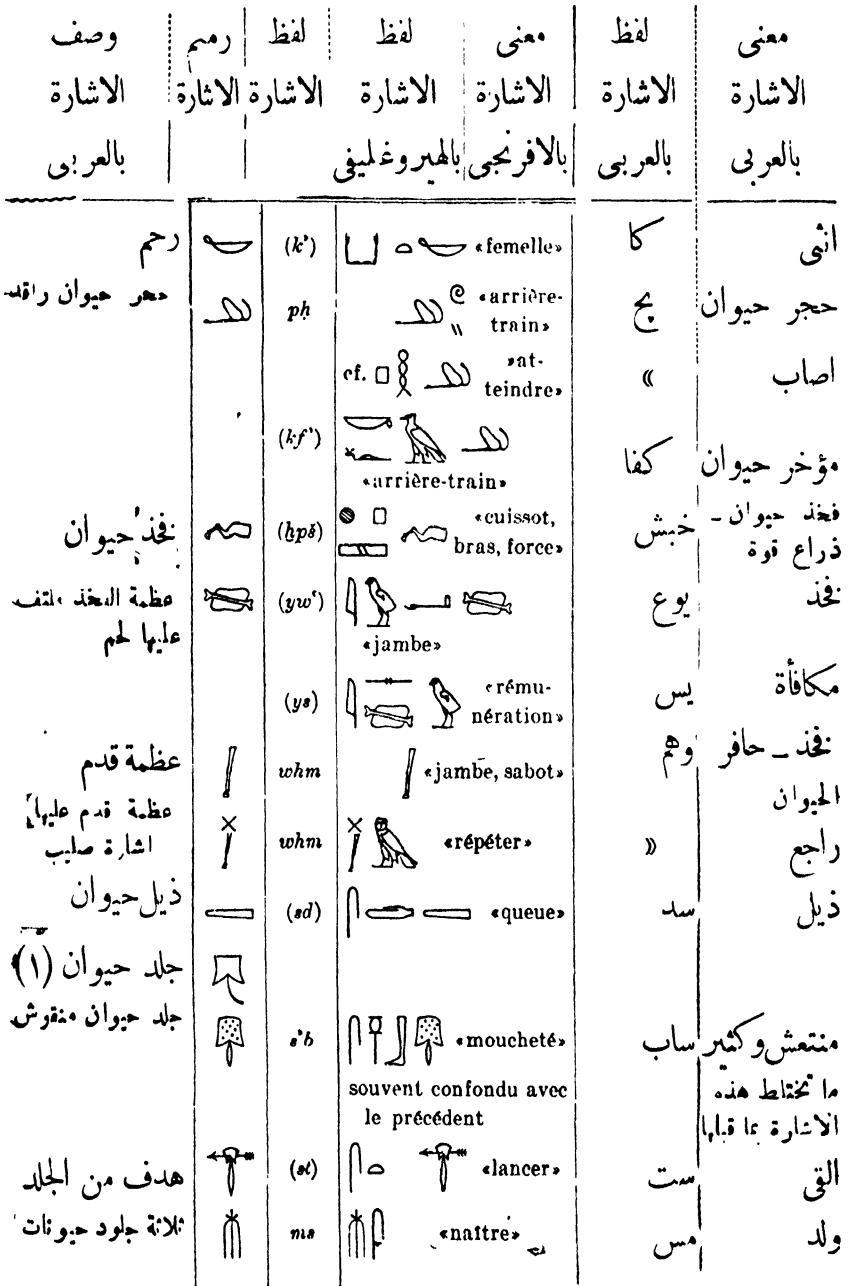 معنى الاشارة بالعربى | لفظ الاشارة بالعربى | معنى الاشارة بالافرنجى | لفظ الاشارة بالهيروغليفى | لفظ الاشارة | رسم الاشارة | وصف الاشارة بالعربى
انثى | كا | «femelle» | (k’) | رحم
حجر حيوان | پح | «arrière-train» | ph | حجر حيوان
اصاب | » | »atteindre» | cf.
مؤخر حيوان | كفا | «arrière-train» | (kf’)
فخذ حيوان ـ ذراع قوة | خبش | «cuissot, bras, force» | (ḫpš) | فخذ حيوان
فخذ | يوع | «jambe» | (yw‘) | عظمة الفخذ ملتف عليها لحم
مكافأة | يس | «rémunération» | (ys)
فخذ ـ حافر الحيوان | وهم | «jambe, sabot» | whm | عظمة قدم
راجع | » | «répéter» | whm | عظمة قدم عليها اشارة صليب
ذيل | سد | «queue» | (sd) | ذيل حيوان
جلد حيوان (١)
منتعش وكثير ما تختلط هذه الاشارة بما قبلها | ساب | «moucheté» | s’b | جلد حيوان منقوش
souvent confondu avec
le précédent
القى | ست | «lancer» | (st) | هدف من الجلد
ولد | مس | «naître» | ms | ثلاثة جلود حيونات